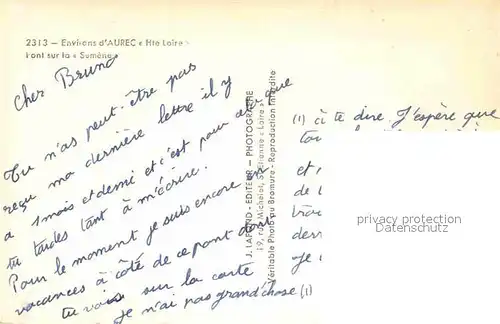 2313 — Environs d'AUREC « Hte Loire »
Pont sur la « Sumène »
Cher Bruno
Tu n'as peut-être pas
reçu ma dernière lettre il y
a 1 mois et demi et c'est pour ça que
tu tardes tant à m'écrire.
Pour le moment je suis encore en
vacances à côté de ce pont dont
tu vois sur la carte
je n'ai pas grand'chose (1)
J. LAFOND - EDITEUR — PHOTOGRAPHE
19, rue Michelet, St-Etienne « Loire »
Véritable Photo au Bromure - Reproduction Interdite
(1) à te dire. J'espère que
et
de
dern
je
privacy protection
DatenSchutz